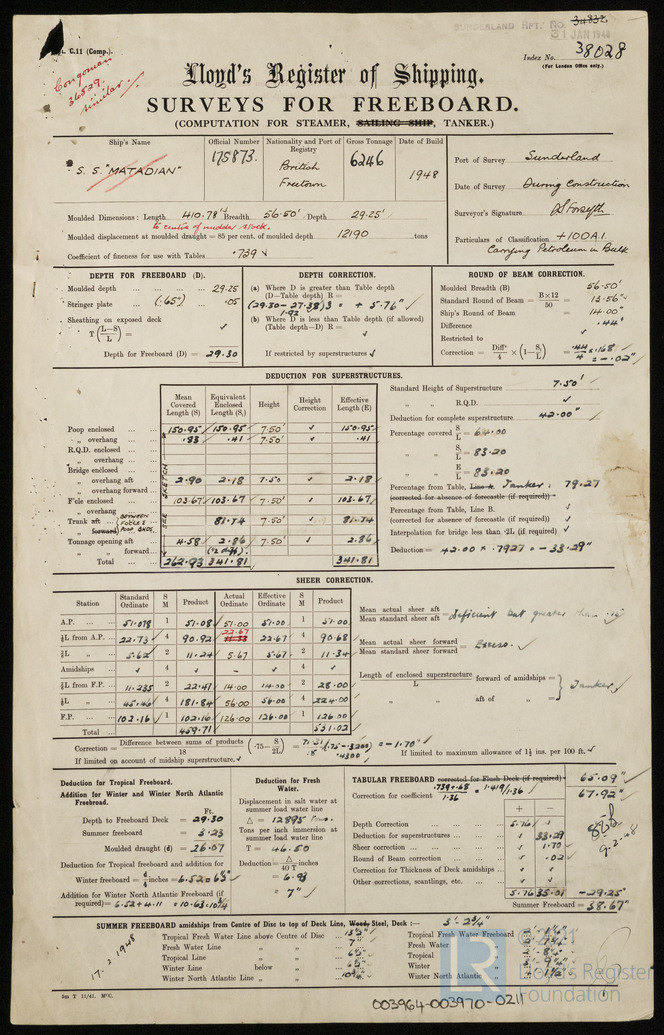 SUNDERLAND RPT. No. 34832
31 JAN 1948
C.11 (Comp.).
Index No. 38028
(For London Office only.)
Congonian
36529.
similar.
Lloyd's Register of Shipping.
SURVEYS FOR FREEBOARD.
(COMPUTATION FOR STEAMER, SAILING SHIP, TANKER.)
Ship's Name
Official Number
Nationality and Port of Registry
Gross Tonnage
Date of Build
S.S. "MATADIAN"
175873.
British
Freetown
6246
1948
Port of Survey Sunderland
Date of Survey During Construction
Surveyor's Signature
Particulars of Classification +100A.1.
Carrying Petroleum in Bulk
Moulded Dimensions: Length 410.78' Breadth 56.50' Depth 29.25'
to centre of rudder stock.
Moulded displacement at moulded draught = 85 per cent. of moulded depth 12190 tons
Coefficient of fineness for use with Tables .739
DEPTH FOR FREEBOARD (D).
Moulded depth 29.25
Stringer plate (.65") .05
Sheathing on exposed deck
T (L–S / L) =
Depth for Freeboard (D) = 29.30
DEPTH CORRECTION.
(a) Where D is greater than Table depth
(D—Table depth) R =
(29.30 - 27.38) 3 = + 5.76"
1.92
(b) Where D is less than Table depth (if allowed)
(Table depth—D) R =
If restricted by superstructures
ROUND OF BEAM CORRECTION.
Moulded Breadth (B) 56.50'
Standard Round of Beam = B×12 / 50 = 13.56"
Ship's Round of Beam = 14.00"
Difference .44"
Restricted to
Correction = Diffce / 4 × (1 – S₁ / L) = .44 / 4 × .168
= -.02"
DEDUCTION FOR SUPERSTRUCTURES.
Mean Covered Length (S)
Equivalent Enclosed Length (S₁)
Height
Height Correction
Effective Length (E)
Poop enclosed 150.95 150.95 7.50' 150.95
" overhang .83 .41 7.50' .41
R.Q.D. enclosed
" overhang
Bridge enclosed
" overhang aft 2.90 2.18 7.50 2.18
" overhang forward
F'cle enclosed 103.67 103.67 7.50' 103.67
" overhang
Trunk aft BETWEEN 81.74 7.50' 81.74
" forward
Tonnage opening aft 4.58 2.86 7.50' 2.86
" " forward
Total 262.93 341.81 341.81
SEE SKETCH
Standard Height of Superstructure 7.50'
" " R.Q.D.
Deduction for complete superstructure 42.00"
Percentage covered S / L = 64.00
" " S₁ / L = 83.20
" " E / L = 83.20
Percentage from Table, Line A. Tanker, 79.27
(corrected for absence of forecastle (if required))
Percentage from Table, Line B.
(corrected for absence of forecastle (if required))
Interpolation for bridge less than .2L (if required)
Deduction = 42.00 × .7927 = -33.29"
SHEER CORRECTION.
Station
Standard Ordinate
S M
Product
Actual Ordinate
Effective Ordinate
S M
Product
A.P. 51.078 1 51.08 51.00 51.00 1 51.00
⅙L from A.P. 22.73 4 90.92 22.67 22.67 4 90.68
⅓L " 5.62 2 11.24 5.67 5.67 2 11.34
Amidships 4 - 4
⅓L from F.P. 11.235 2 22.47 14.00 14.00 2 28.00
⅙L " 45.46 4 181.84 56.00 56.00 4 224.00
F.P. 102.16 1 102.16 126.00 126.00 1 126.00
Total 459.71 531.02
Mean actual sheer aft
Mean standard sheer aft = Deficient but greater than
Mean actual sheer forward
Mean standard sheer forward = Excess.
Length of enclosed superstructure / L forward of amidships =
" aft of " =
Tanker
Correction = Difference between sums of products / 18 (.75 – S / 2L) = 71.31 / 18 (.75 - .3200) = -1.70"
.4300
If limited on account of midship superstructure.
If limited to maximum allowance of 1½ ins. per 100 ft.
Deduction for Tropical Freeboard.
Addition for Winter and Winter North Atlantic Freeboard.
Ft.
Depth to Freeboard Deck = 29.30
Summer freeboard = 3.23
Moulded draught (d) = 26.07
Deduction for Tropical freeboard and addition for
Winter freeboard = d / 4 inches = 6.52 = 6½"
Addition for Winter North Atlantic Freeboard (if
required) = 6.52 + 4.11 = 10.63 = 10¾"
Deduction for Fresh Water.
Displacement in salt water at summer load water line
Δ = 12895 Tons.
Tons per inch immersion at summer load water line
T = 46.50
Deduction = Δ / 40T inches
= 6.93
= 7"
TABULAR FREEBOARD corrected for Flush Deck (if required) 65.09"
Correction for coefficient .739 + .68 / 1.36 = 1.419 / 1.36 67.92"
+ –
Depth Correction 5.76
Deduction for superstructures 33.29
Sheer correction 1.70
Round of Beam correction .02
Correction for Thickness of Deck amidships
Other corrections, scantlings, etc.
5.76 35.01 -29.25"
Summer Freeboard = 38.67"
9.2.48
SUMMER FREEBOARD amidships from Centre of Disc to top of Deck Line, Wood, Steel, Deck :— 3'-2¾"
Tropical Fresh Water Line above Centre of Disc 13½"
Fresh Water Line " " 7"
Tropical Line " " 6½"
Winter Line below " 6½"
Winter North Atlantic Line " " 10¾"
Tropical Fresh Water Freeboard
Fresh Water "
Tropical "
Winter "
Winter North Atlantic "
17.2.1948
5m T 11/41. MºC.
003964-003970-0211
LR
© 2021
Lloyd's Register
Foundation